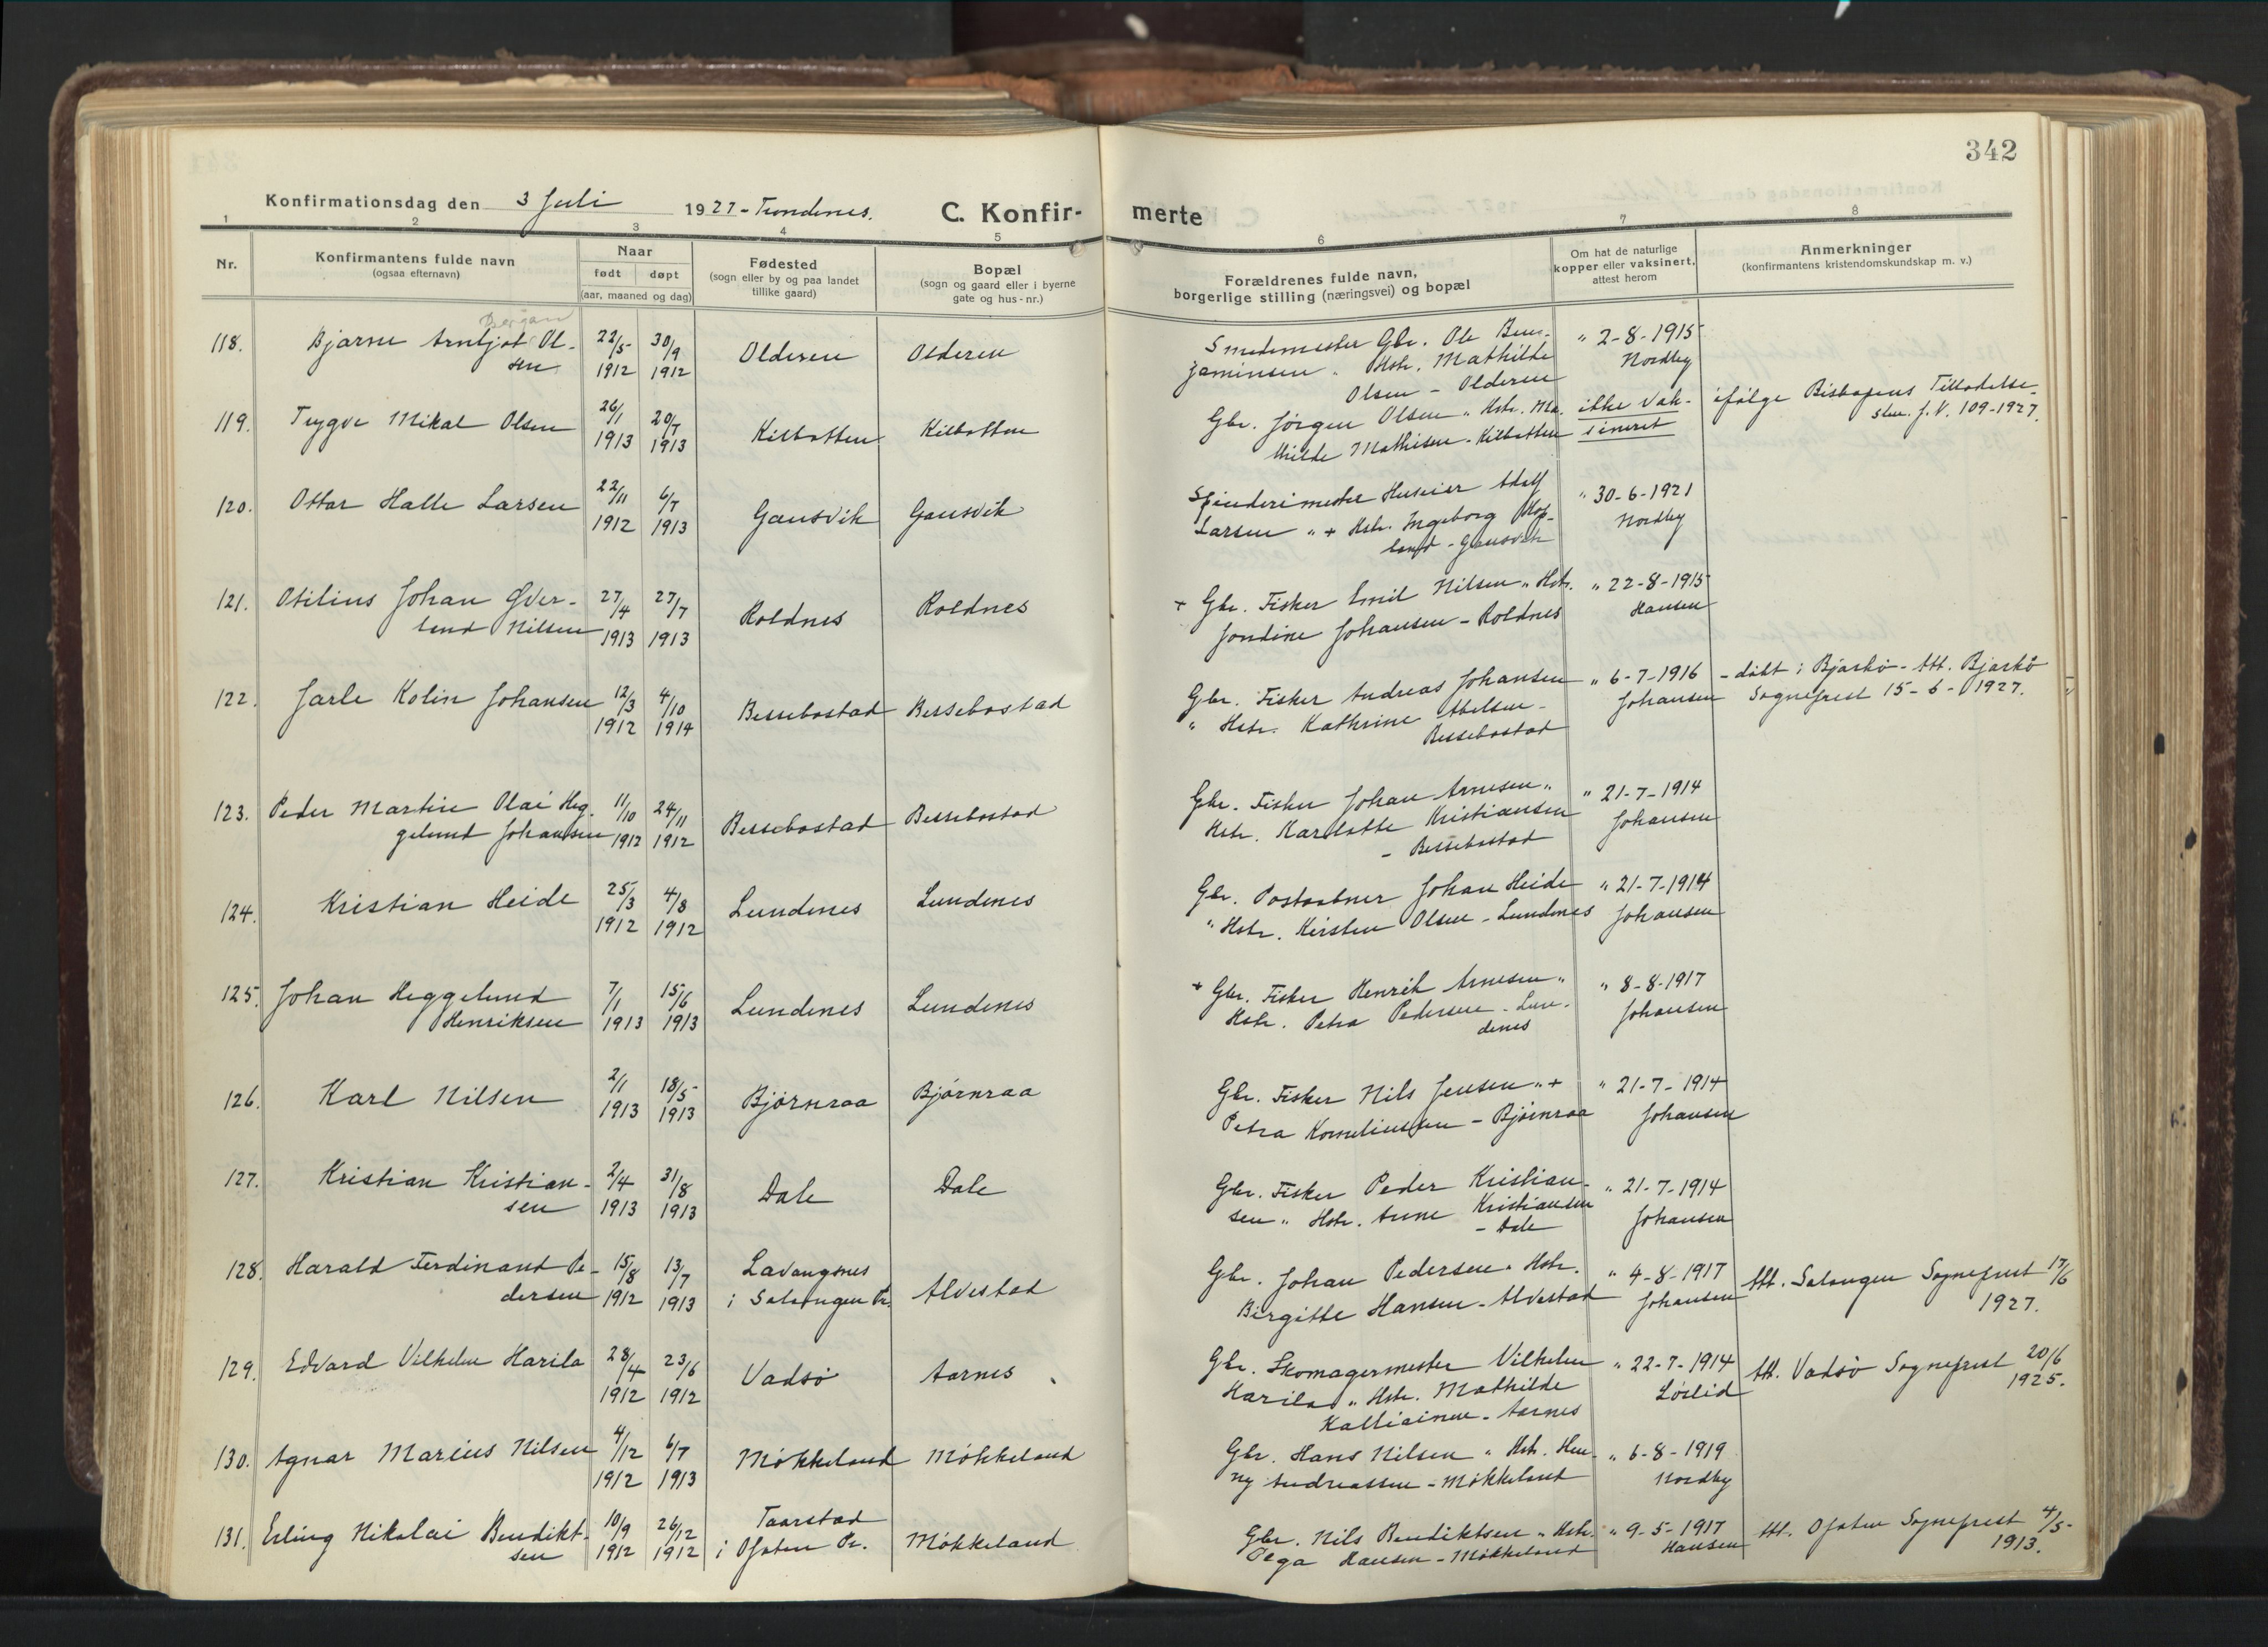 342
Konfirmationsdag den 3 Juli 1927 - Trondenes.
C. Konfir-
merte
1 2 3 4 5 6 7 8
Nr.
Konfirmantens fulde navn
(ogsaa efternavn)
Naar
født døpt
(aar, maaned og dag)
Fødested
(sogn eller by og paa landet
tillike gaard)
Bopæl
(sogn og gaard eller i byerne
gate og hus-nr.)
Forældrenes fulde navn,
borgerlige stilling (næringsvei) og bopæl
Om hat de naturlige
kopper eller vaksinert,
attest herom
Anmerkninger
(konfirmantens kristendomskundskap m. v.)
118. Bjarne Arnljot Ol- 22/5 30/9 Olderen Olderen Smedemester Gbr. Ole Ben- " 2-8-1915
sen 1912 1912 jaminsen " Hstr. Mathilde Nordby
Olsen - Olderen
119. Trygve Mikal Olsen 26/1 20/7 Kilbotten Kilbotten Gbr. Jørgen Olsen " Hstr. Ma- ikke vak- ifølge Biskopens Tilladelse
1913 1913 thilde Mathisen - Kilbotten sineret J.V. 109-1927.
120. Ottar Halle Larsen 22/11 6/7 Gausvik Gausvik Spinderimester Huseier Adolf " 30-6-1921
1912 1913 Larsen " + Hstr. Ingeborg Nordby
land - Gausvik
121. Otilius Johan Gver- 27/4 27/7 Roldnes Roldnes + Gbr. Fisker Emil Nilsen " Hstr. " 22-8-1915
land Nilsen 1913 1913 Jondine Johansen - Roldnes Hansen
122. Jarle Kolin Johansen 12/3 4/10 Bessebostad Bessebostad Gbr. Fisker Andreas Johansen " 6-7-1916 - døbt i Bjarkö - Att. Bjarkö
1912 1914 " Hstr. Kathrine Abelsen - Johansen Sogneprest 15-6-1927.
Bessebostad
123. Peder Martin Olai Heg- 11/10 24/11 Bessebostad Bessebostad Gbr. Fisker Johan Arnesen " " 21-7-1914
gelund Johansen 1912 1912 Hstr. Karlotte Kristiansen Johansen
- Bessebostad
124. Kristian Heide 25/3 4/8 Lundenes Lundenes Gbr. Postaabner Johan Heide " 21-7-1914
1912 1912 " Hstr. Kirsten Olsen - Lundenes Johansen
125. Johan Heggelund 7/1 15/6 Lundenes Lundenes + Gbr. Fisker Henrik Arnesen " " 8-8-1917
Henriksen 1913 1913 Hstr. Petra Pedersen - Lun- Johansen
denes
126. Karl Nilsen 2/1 18/5 Bjørnraa Bjørnraa Gbr. Fisker Nils Jensen " + " 21-7-1914
1913 1913 Petra Korneliussen - Bjørnraa Johansen
127. Kristian Kristian- 2/4 31/8 Dale Dale Gbr. Fisker Peder Kristian- " 21-7-1914
sen 1913 1913 sen " Hstr. Anne Kristiansen Johansen
- Dale
128. Harald Ferdinand Pe- 15/8 13/7 Lavangsnes Alvestad Gbr. Johan Pedersen " Hstr. " 4-8-1917 Att. Salangen Sogneprest 17/6
dersen 1912 1913 i Salangen Pr. Birgitte Hansen - Alvestad Johansen 1927.
129. Edvard Vilhelm Harila 28/4 23/6 Vadsø Aarnes Gbr. Skomagermester Vilhelm " 22-7-1914 Att. Vadsø Sogneprest 20/6
1912 1912 Harila " Hstr. Mathilde Løslid 1925.
Kalliainen - Aarnes
130. Agnar Marius Nilsen 4/12 6/7 Møkkeland Møkkeland Gbr. Hans Nilsen " Hstr. Hen- " 6-8-1919
1912 1913 ny Andreassen - Møkkeland Nordby
131. Erling Nikolai Bendikt- 10/9 26/12 Taarstad Møkkeland Gbr. Nils Bendiktsen " Hstr. " 9-5-1917 Att. Ofoten Sogneprest 4/5-
sen 1912 1912 i Ofoten Pr. Olga Hansen - Møkkeland Hansen 1913.